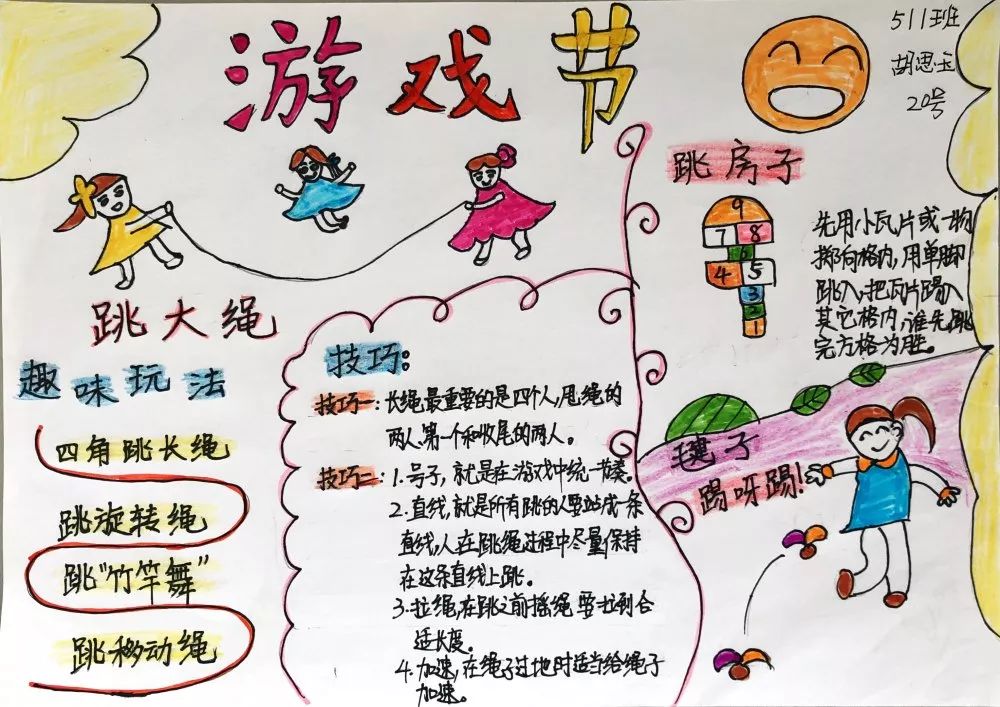 游戏节
511班
胡思玉
20号
跳大绳
趣味玩法
四角跳长绳
跳旋转绳
跳“竹竿舞”
跳移动绳
技巧:
技巧一:长绳最重要的是四个人,甩绳的
两人、第一个和收尾的两人。
技巧二:1.号子,就是在游戏中统一节奏。
2.直线,就是所有跳的人要站成一条
直线,人在跳绳过程中尽量保持
在这条直线上跳。
3.拉绳,在跳之前摇绳要拉到合
适长度。
4.加速,在绳子过地时适当给绳子
加速。
跳房子
9
7 8
6
4 5
3
2
1
先用小瓦片或一物
掷向格内,用单脚
跳入,把瓦片踢入
其它格内,谁先跳
完方格为胜。
毽子
踢呀踢!